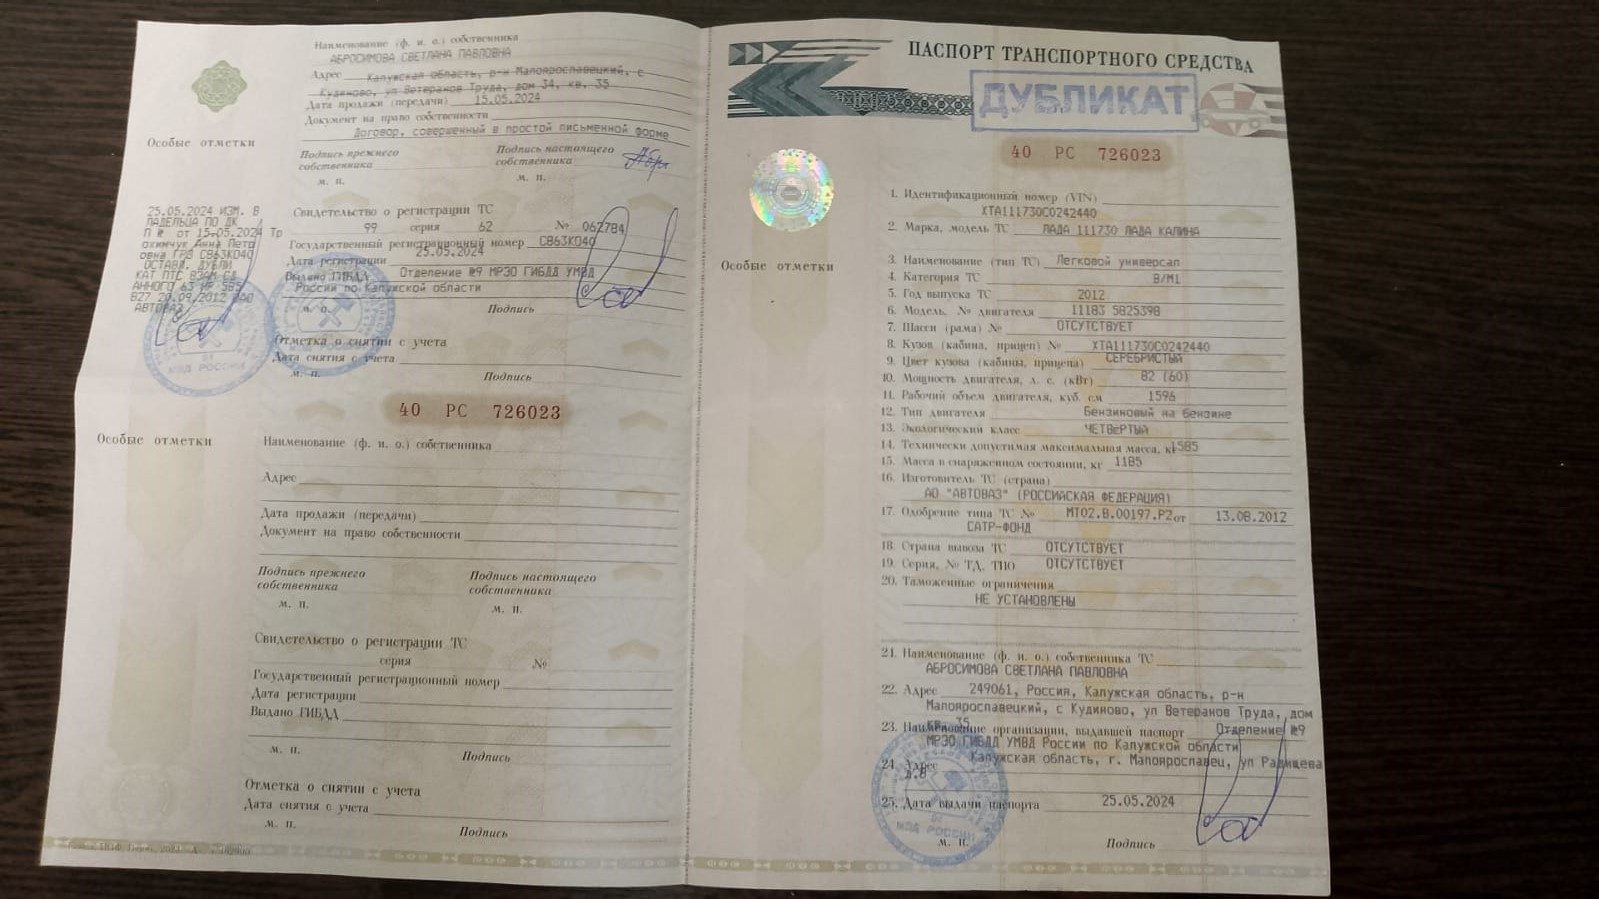 Наименование (ф. и. о.) собственника
АБРОСИМОВА СВЕТЛАНА ПАВЛОВНА
Адрес Калужская область, р-н Малоярославецкий, с
Кудиново, ул Ветеранов Труда, дом 34, кв. 35
Дата продажи (передачи) 15.05.2024
Документ на право собственности
Договор, совершенный в простой письменной форме
Подпись прежнего собственника
Подпись настоящего собственника
м. п.
м. п.
Особые отметки
25.05.2024 ИЗМ. В
ЛАДЕЛЬЦА ПО ДК
П № от 15.05.2024 Тр
охимчук Анна Петр
овна ГРЗ С863КО40
ОСТАВЛ. ДУБЛИ
КАТ ПТС ВЗАМ СД
АННОГО 63 НР 585
827 20.09.2012 ОАО
АВТОВАЗ
МВД РОССИИ
Свидетельство о регистрации ТС
99 серия 62 № 062784
Государственный регистрационный номер С863КО40
25.05.2024
Дата регистрации
Выдано ГИБДД Отделение №9 МРЭО ГИБДД УМВД
России по Калужской области
м. п.
Подпись
Отметка о снятии с учета
Дата снятия с учета
м. п.
Подпись
40 РС 726023
Особые отметки
Наименование (ф. и. о.) собственника
Адрес
Дата продажи (передачи)
Документ на право собственности
Подпись прежнего собственника
Подпись настоящего собственника
м. п.
м. п.
Свидетельство о регистрации ТС
серия №
Государственный регистрационный номер
Дата регистрации
Выдано ГИБДД
м. п.
Подпись
Отметка о снятии с учета
Дата снятия с учета
м. п.
Подпись
ПАСПОРТ ТРАНСПОРТНОГО СРЕДСТВА
ДУБЛИКАТ
40 РС 726023
Особые отметки
1. Идентификационный номер (VIN)
XTA111730C0242440
2. Марка, модель ТС ЛАДА 111730 ЛАДА КАЛИНА
3. Наименование (тип ТС) Легковой универсал
4. Категория ТС B/M1
5. Год выпуска ТС 2012
6. Модель, № двигателя 11183 5825398
7. Шасси (рама) № ОТСУТСТВУЕТ
8. Кузов (кабина, прицеп) № XTA111730C0242440
9. Цвет кузова (кабины, прицепа) СЕРЕБРИСТЫЙ
10. Мощность двигателя, л. с. (кВт) 82 (60)
11. Рабочий объем двигателя, куб. см 1596
12. Тип двигателя Бензиновый на бензине
13. Экологический класс ЧЕТВЕРТЫЙ
14. Технически допустимая максимальная масса, кг 1585
15. Масса в снаряженном состоянии, кг 1185
16. Изготовитель ТС (страна)
АО "АВТОВАЗ" (РОССИЙСКАЯ ФЕДЕРАЦИЯ)
17. Одобрение типа ТС № МТ02.В.00197.Р2 от 13.08.2012
САТР-ФОНД
18. Страна вывоза ТС ОТСУТСТВУЕТ
19. Серия, № ТД, ТПО ОТСУТСТВУЕТ
20. Таможенные ограничения
НЕ УСТАНОВЛЕНЫ
21. Наименование (ф. и. о.) собственника ТС
АБРОСИМОВА СВЕТЛАНА ПАВЛОВНА
22. Адрес 249061, Россия, Калужская область, р-н
Малоярославецкий, с Кудиново, ул Ветеранов Труда, дом
кв. 35
23. Наименование организации, выдавшей паспорт Отделение №9
МРЭО ГИБДД УМВД России по Калужской области
24. Адрес Калужская область, г. Малоярославец, ул Радищева
д.8
25. Дата выдачи паспорта 25.05.2024
м. п.
Подпись
МВД РОССИИ